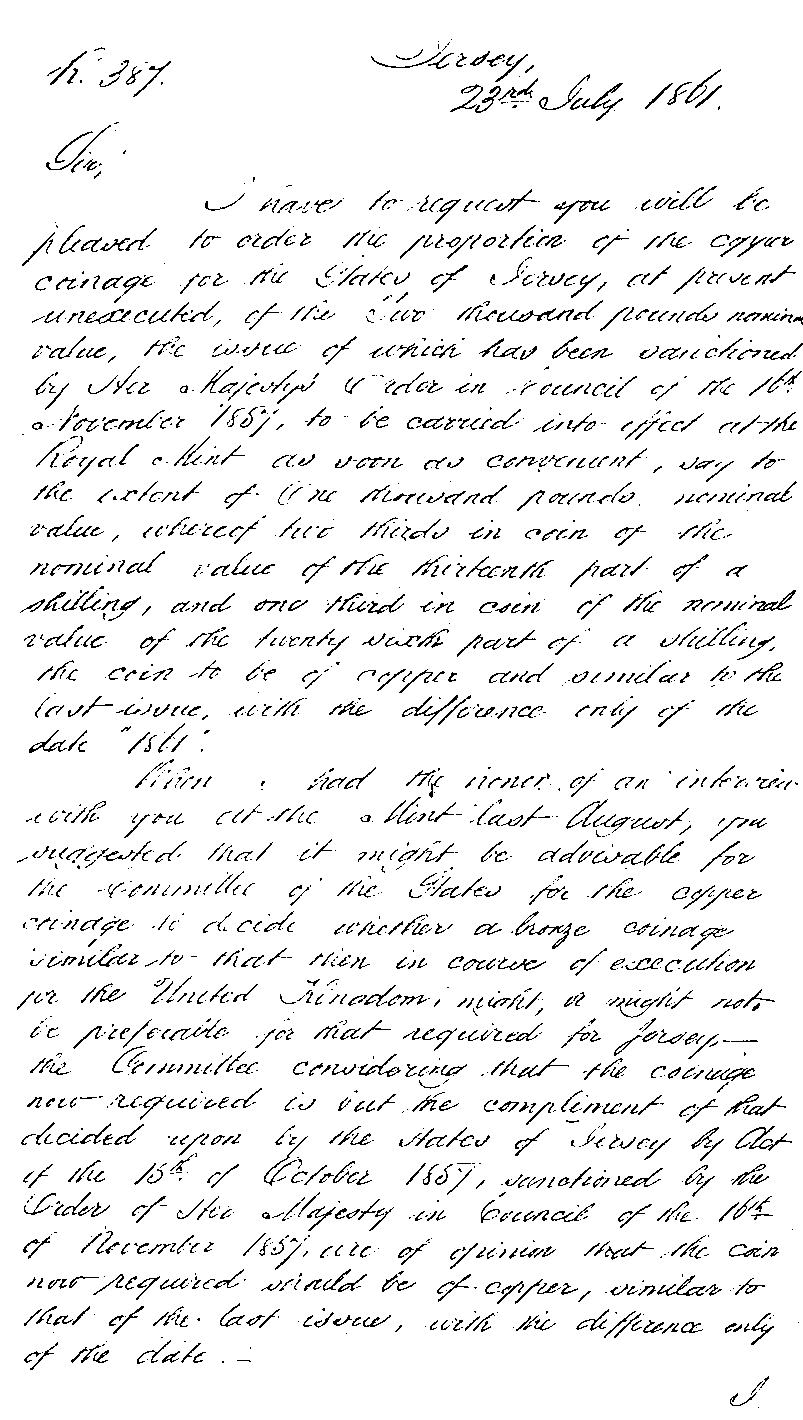 K. 387.
Jersey,
23rd July 1861.
Sir,
I have to request you will be
pleased to order the proportion of the copper
coinage for the States of Jersey, at present
unexecuted, of the Two thousand pounds nominal
value, the issue of which has been sanctioned
by Her Majesty's Order in Council of the 16th
November 1857, to be carried into effect at the
Royal Mint as soon as convenient, say to
the extent of One thousand pounds nominal
value, whereof two thirds in coin of the
nominal value of the thirteenth part of a
shilling, and one third in coin of the nominal
value of the twenty sixth part of a shilling,
the coin to be of copper and similar to the
last issue, with the difference only of the
date "1861".
When I had the honor of an interview
with you at the Mint last August, you
suggested that it might be advisable for
the Committee of the States for the copper
coinage to decide whether a bronze coinage
similar to that then in course of execution
for the United Kingdom, might, or might not,
be preferable for that required for Jersey,—
the Committee considering that the coinage
now required is but the compliment of that
decided upon by the States of Jersey by Act
of the 15th of October 1857, sanctioned by the
Order of Her Majesty in Council of the 16th
of November 1857, are of opinion that the coin
now required should be of copper, similar to
that of the last issue, with the difference only
of the date.—
I